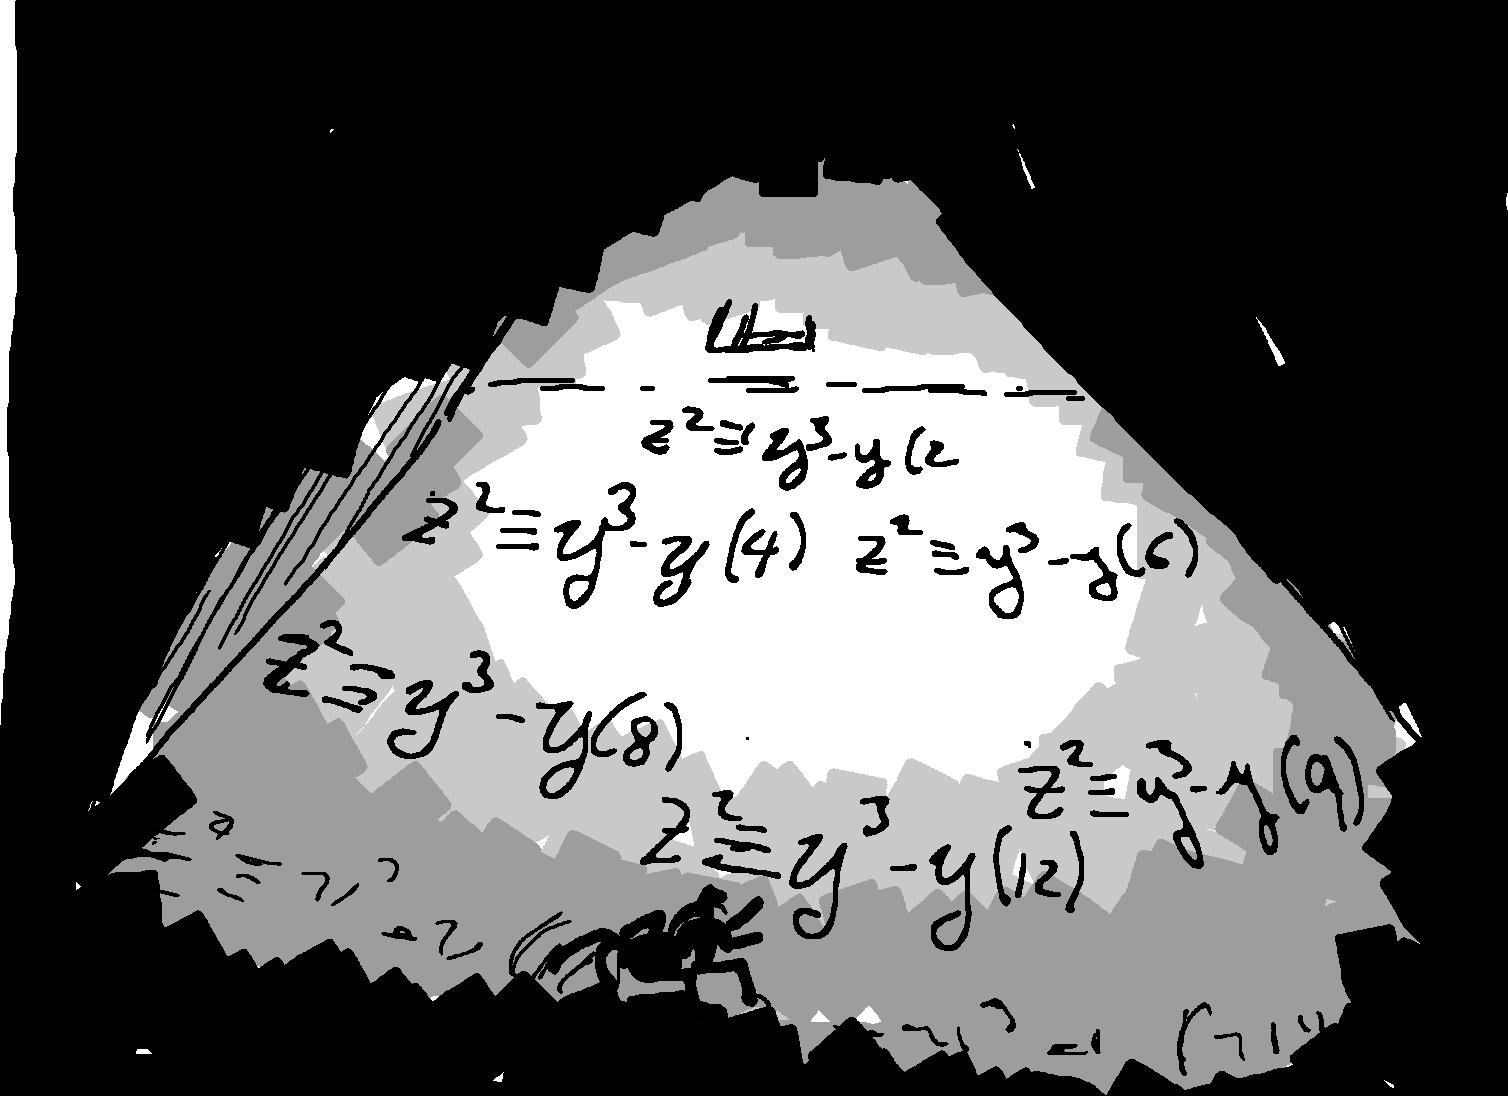 z² ≡ y³-y (2
z² ≡ y³-y (4) z² ≡ y³-y (6)
z² ≡ y³-y (8)
z² ≡ y³-y (9)
z² ≡ y³-y (12)